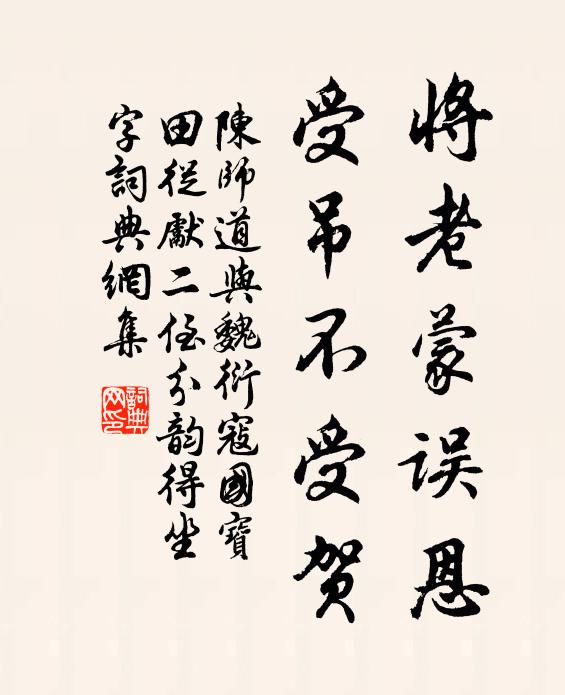 將老蒙误恩
受吊不受贺
陳師道與魏衍寇國寶
田從獻二侄分韵得坐
字詞典網集
詞典
网印